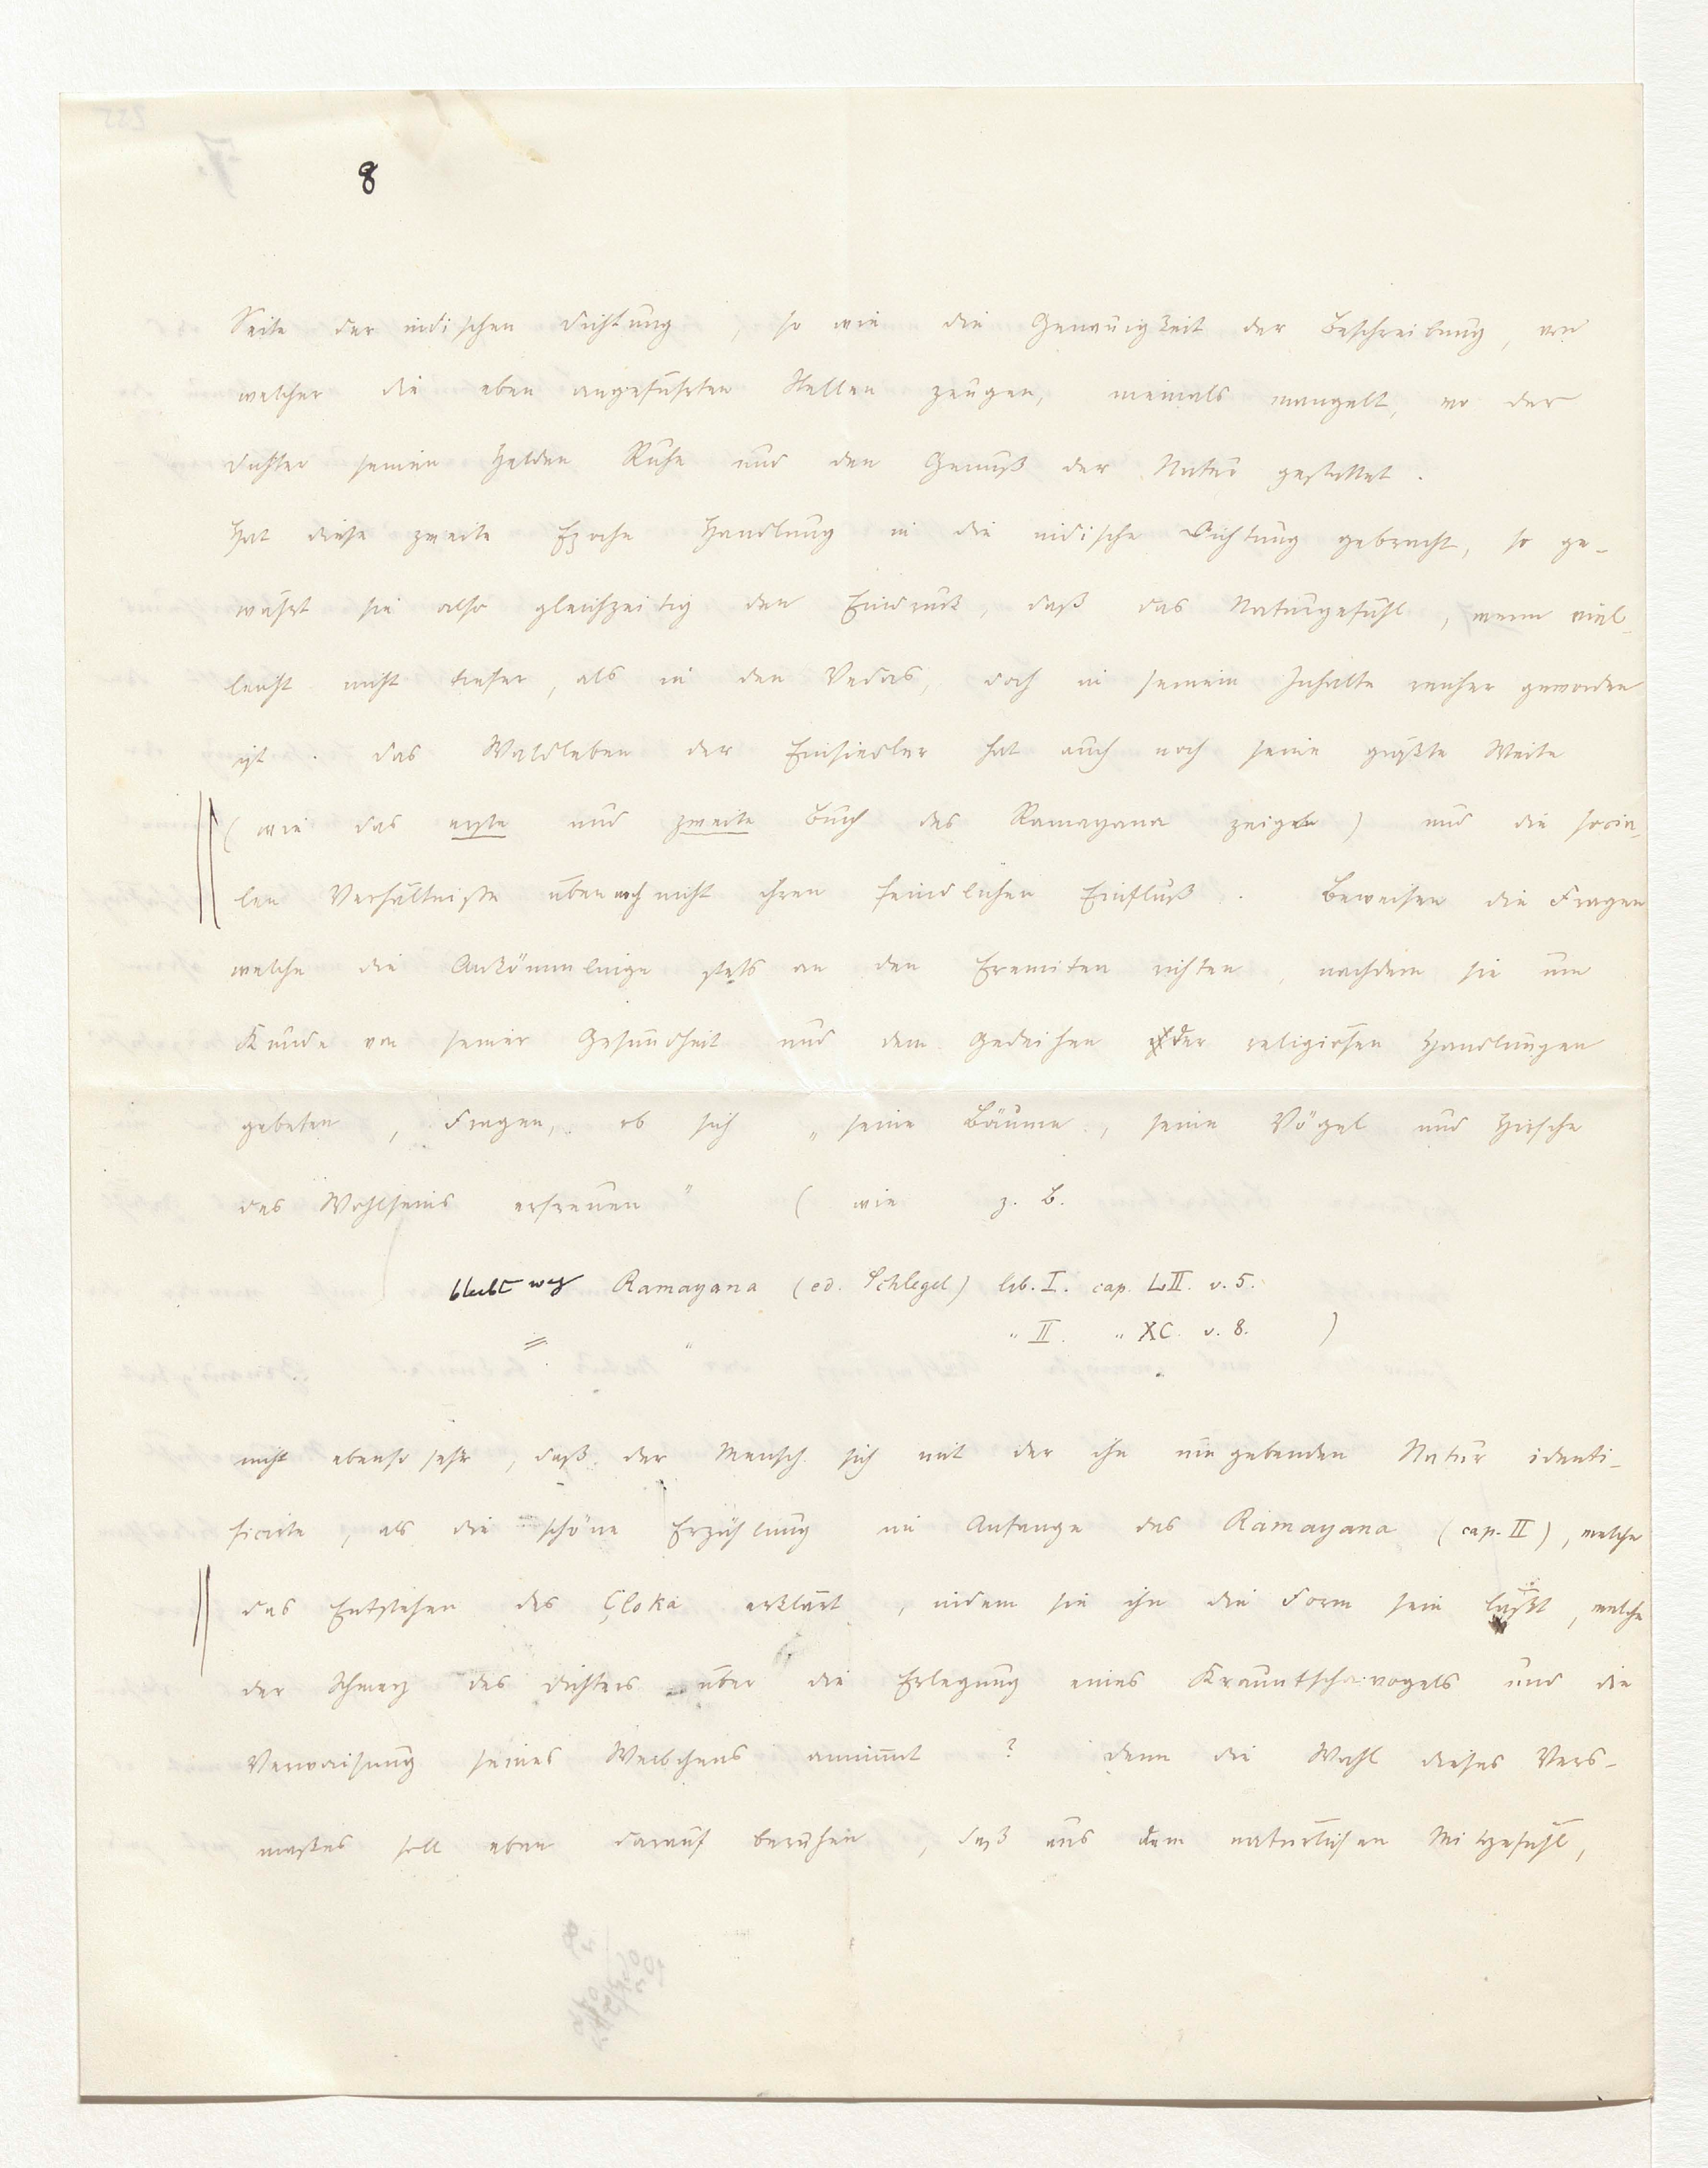 8
Seite der indischen Dichtung, so wie die Genauigkeit der Beschreibung, von
welcher die eben angeführten Stellen zeugen, niemals mangelt, wo der
Dichter seinen Helden Ruhe und den Genuß der Natur gestattet.
Hat diese zweite Epoche Handlung in die indische Dichtung gebracht, so ge-
währt sie also gleichzeitig den Eindruck, daß das Naturgefühl, wenn viel-
leicht nicht tiefer, als in den Vedas, doch in seinem Inhalte reicher geworden
ist. Das Waldleben der Einsiedler hat auch noch seine größte Weite
(wie das erste und zweite Buch des Ramayana zeigen) und die socia-
len Verhältnisse üben noch nicht ihren feindlichen Einfluß. Beweisen die Fragen
welche die Ankömmlinge stets an den Eremiten richten, nachdem sie um
Kunde von seiner Gesundheit und dem Gedeihen der religiösen Handlungen
gebeten, Fragen, ob sich „seine Bäume, seine Vögel und Hirsche
des Wohlseins erfreuen" (wie z. B.
bleibt weg Ramayana (ed. Schlegel) lib. I. cap. LII. v. 5.
" " II. " XC. v. 8. )
nicht ebenso sehr, daß der Mensch sich mit der ihn umgebenden Natur identi-
ficirte, als die schöne Erzählung im Anfange des Ramayana (cap. II), welche
das Entstehen des Çloka erklärt, indem sie ihn die Form sein läßt, welche
der Schmerz des Dichters über die Erlegung eines Krauntscha-vogels und die
Verwaisung seines Weibchens annimmt? Denn die Wahl dieses Vers-
maßes soll eben darauf beruhen, daß aus dem natürlichen Mitgefühl,